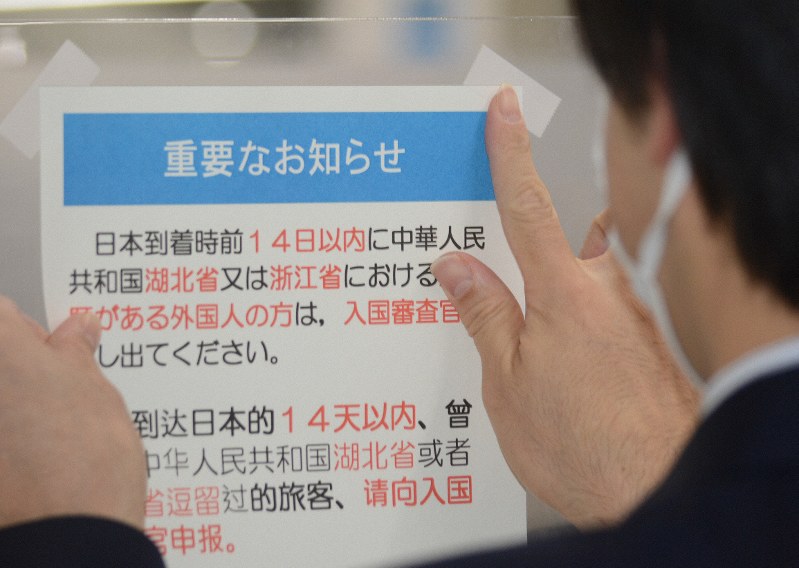 重要なお知らせ
日本到着時前14日以内に中華人民
共和国湖北省又は浙江省における
歴がある外国人の方は，入国審査官
し出てください。
到达日本的14天以内、曾
中华人民共和国湖北省或者
省逗留过的旅客、请向入国
官申报。